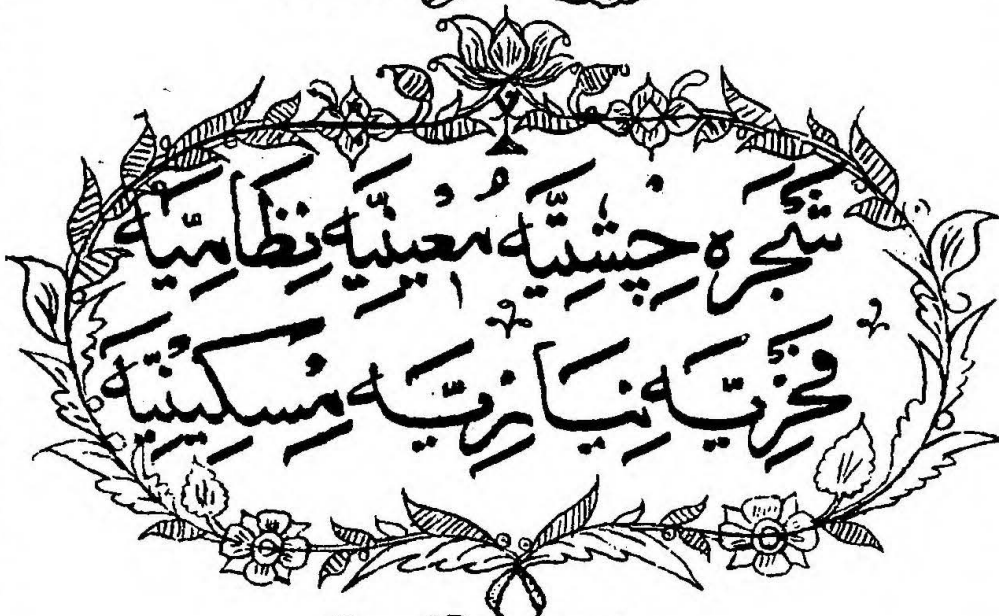 شَجَرَہ چِشتِیَّہ مُعِینِیَّہ نِظَامِیَّہ
فَخرِیَّہ نِیَازِیَّہ مِسکِینِیَّہ